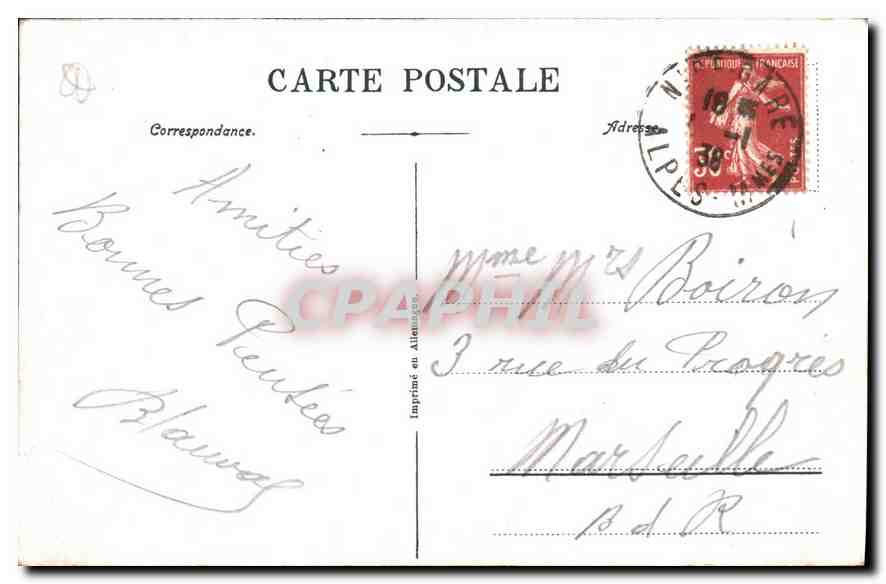 CARTE POSTALE
Correspondance.
Adresse
RÉPUBLIQUE FRANÇAISE
30c
POSTES
18
-1
38
ALPES - MMES
Amitiés
Bonnes Pensées
Imprimé en Allemagne.
CPAPHIL
Mme Mrs Boiron
3 rue du Progrès
Marseille
B d R